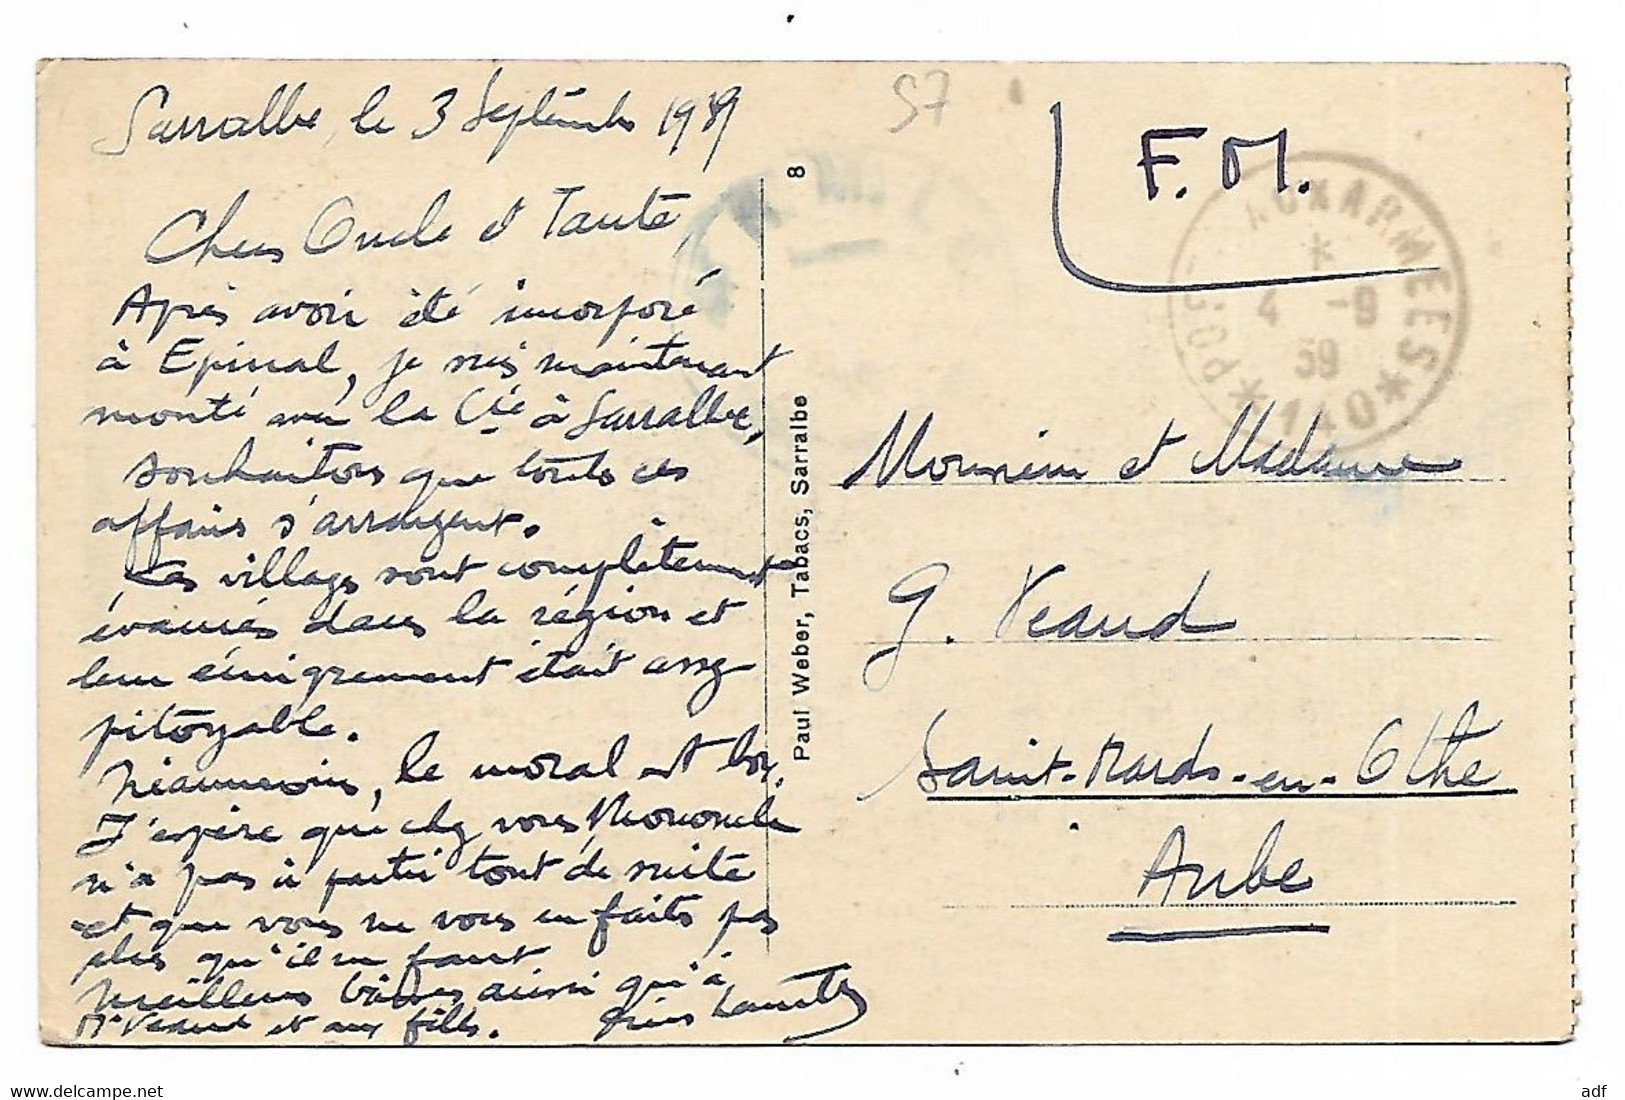 Sarralbe, le 3 Septembre 1939
Chers Oncle et Tante,
Après avoir été incorporé
à Epinal, je suis maintenant
monté avec la Cie à Sarralbe,
souhaitons que toutes ces
affaires s'arrangent.
Les villages sont complètement
évacués dans la région et
leur émigrement était assez
pitoyable.
Néanmoins, le moral est bon.
J'espère que chez vous Mononcle
n'a pas à partir tout de suite
et que vous ne vous en faites pas
plus qu'il ne faut
Meilleurs baisers ainsi qu'à
Me Veaud et aux filles.
8
Paul Weber, Tabacs, Sarralbe
57
F.M.
AUX ARMEES
*
4 -9
39
*140*
Monsieur et Madame
G. Veaud
Saint-Mards-en-Othe
Aube
adf